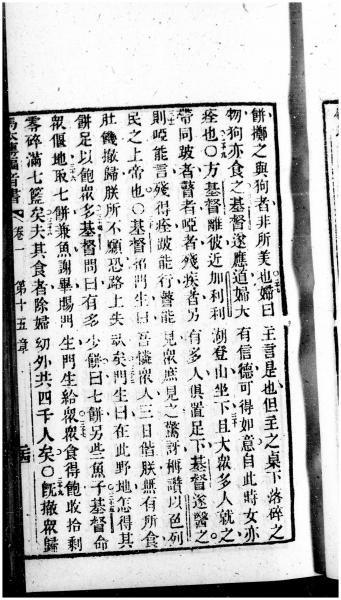 餅擲之與狗者非所美也婦曰主言是也但主之桌下落碎之
物狗亦食之基督遂應道婦大有信德可得如意自此時女亦
痊也○方基督離彼近加利利湖登山坐下且大眾多人就之
帶同跛者瞽者啞者殘疾者另有多人俱置足下基督遂醫之
則啞能言殘得痊跛能行瞽能見眾庶見之驚訝稱讚以色列
民之上帝也○基督招門生曰吾憐眾人三日偕朕無有所食
肚饑撤歸朕所不願恐路上失矣門生曰在此野地怎得其
餅足以飽眾多基督問曰有多少餅曰七餅另些魚子基督命
眾偃地取七餅兼魚謝畢賜門生門生給眾眾食得飽收拾剩
零碎滿七籃矣夫其食者除婦幼外共四千人矣○既撤眾歸
馬太傳福音書 卷一 第十五章